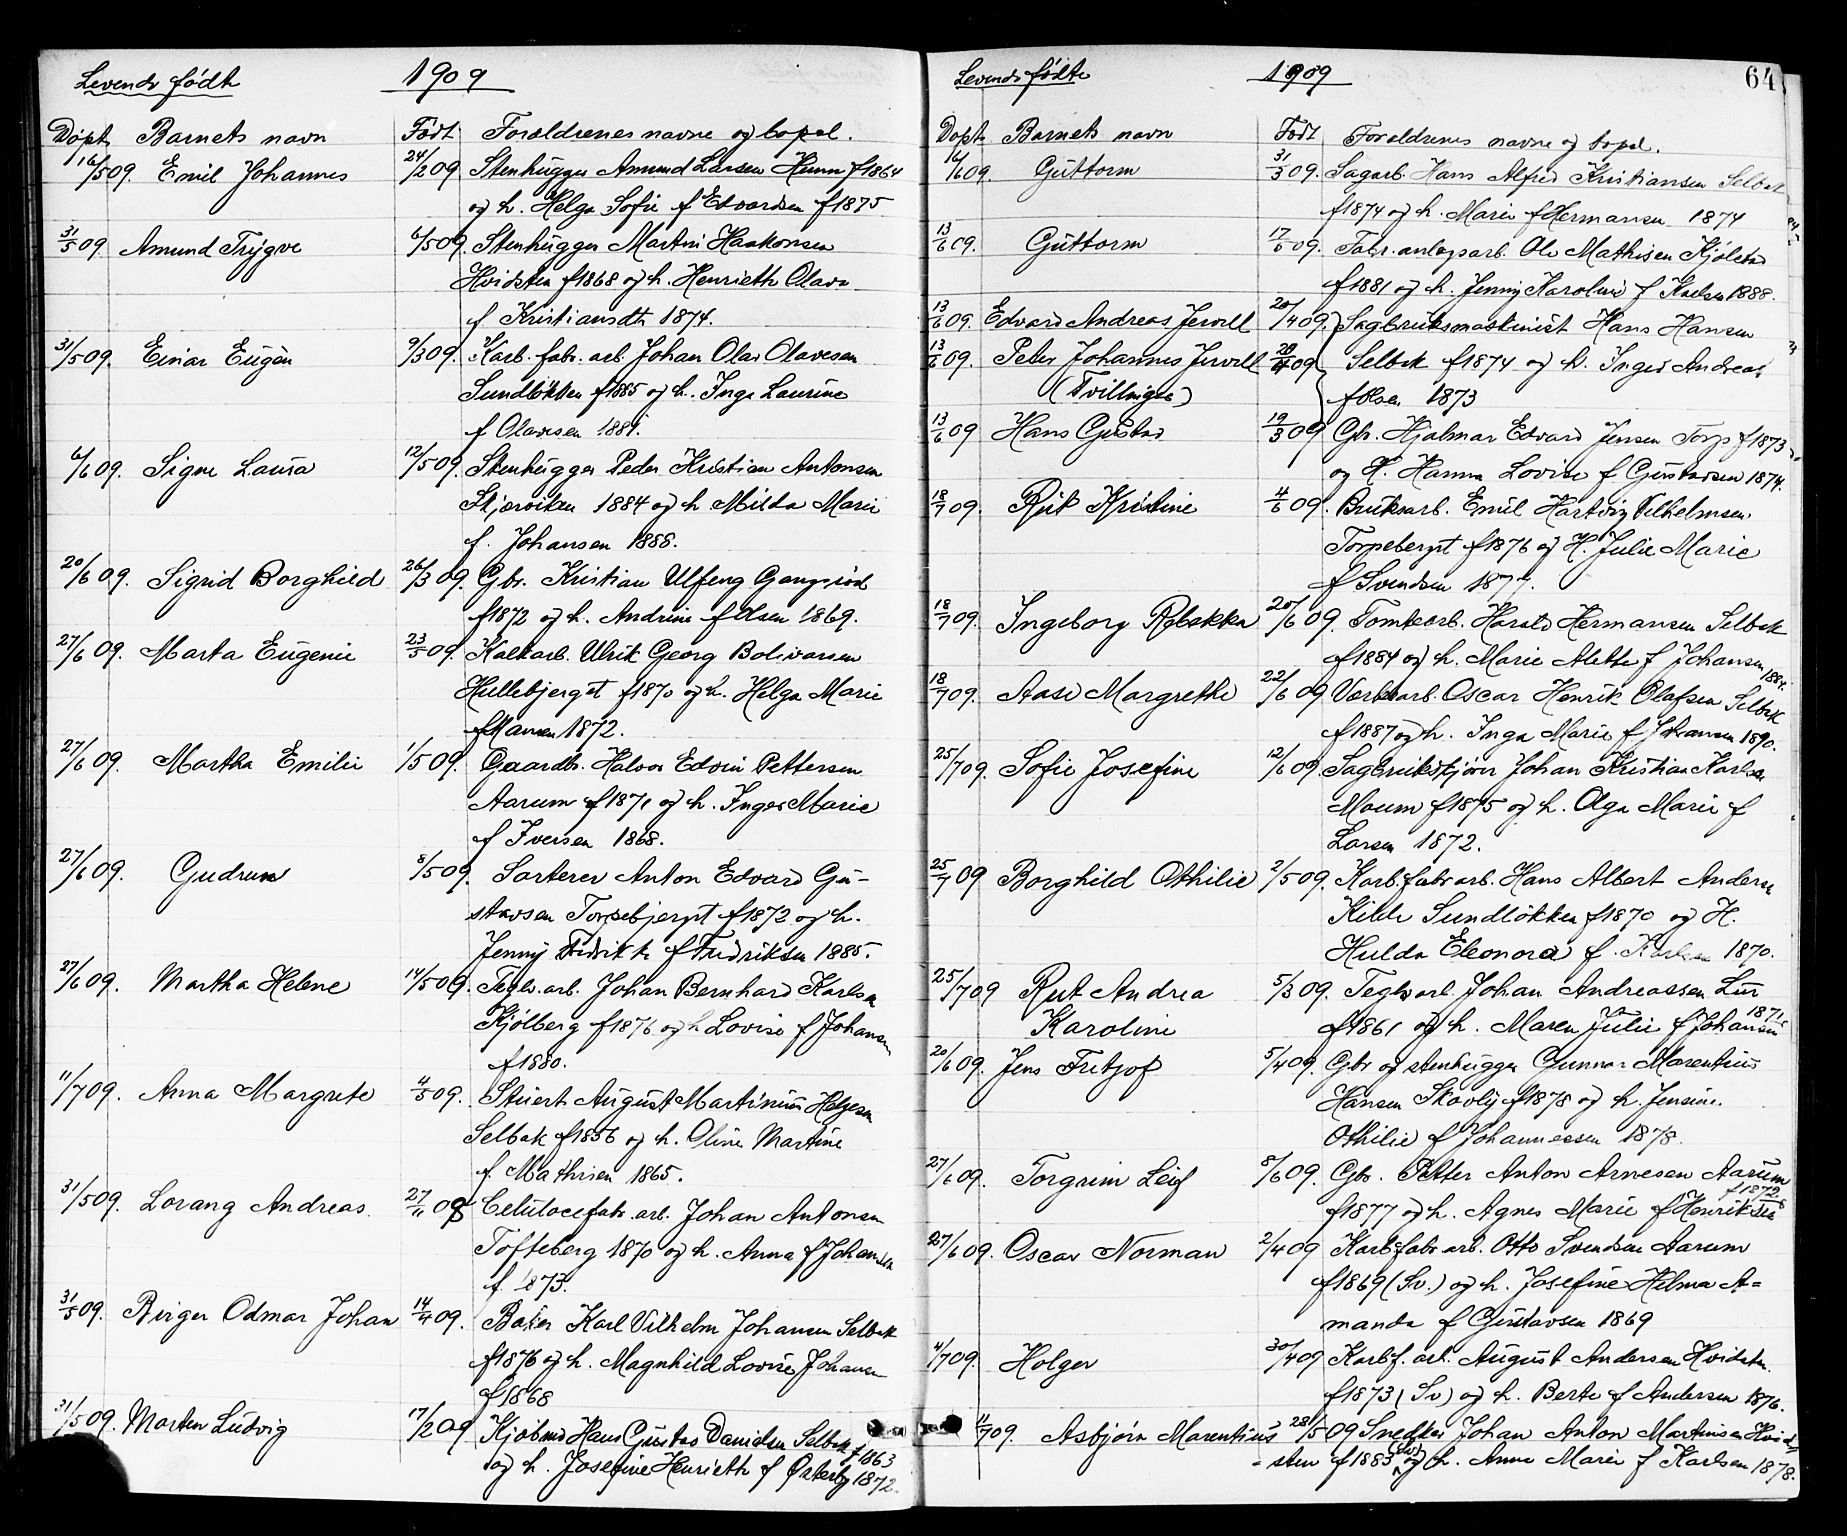 Levende født 1909
Døpt Barnets navn Født Foreldrenes navne og bopel.
16/5 09. Emil Johannes 24/2 09 Stenhugger Amund Larsen Hunn f 1864
og h. Helga Sofie f Edvardsen f 1875
31/5 09. Amund Trygve 6/5 09. Stenhugger Martin Haakonsen
Hvidsten f 1868 og h. Henriette Olava
f Kristiansdtr 1874.
31/5 09. Einar Eugèn 9/3 09. Karb. fabr. arb. Johan Olav Olavesen
Sundløkken f 1885 og h. Inga Laurine
f Olavesen 1881.
6/6 09. Signe Laura 12/5 09. Stenhugger Peder Kristian Antonsen
Skjærviken 1884 og h Milda Marie
f. Johansen 1888.
20/6 09. Sigrid Borghild 26/3 09. Gbr. Kristian Ulfeng Gangsrød
f 1872 og h. Andrine f Olsen 1869.
27/6 09. Marta Eugenie 23/5 09. Kalkarb. Ulrik Georg Bolivarsen
Hullebjerget f 1870 og h. Helga Marie
f Hansen 1872.
27/6 09. Martha Emilie 1/5 09. Gaardbr. Halvor Edvin Pettersen
Aarum f 1871 og h. Inger Marie
f Iversen 1868.
27/6 09. Gudrun 8/5 09. Sorterer Anton Edvard Gu-
stavsen Torpebjerget f 1872 og h.
Jenny Fredrikke f Fredriksen 1885.
27/6 09. Martha Helene 14/5 09. Teglv. arb. Johan Bernhard Karlsen
Kjølberg f 1876 og h Lovise f Johansen
f 1880.
11/7 09. Anna Margrete 4/5 09. Stuert August Martinius Helgesen
Selbak f 1856 og h. Oline Martine
f. Mathisen 1865.
31/5 09. Lorang Andreas 27/11 08 Celulosefabr. arb. Johan Antonsen
Tofteberg 1870 og h. Anna f Johansen
f. 1873.
31/5 09. Birger Odmar Johan 14/4 09. Baker Karl Vilhelm Johansen Selbak
f 1876 og h. Magnhild Lovise Johansen
f 1868
31/5 09. Morten Ludvig 17/2 09 Kjøbmd Hans Gustav Danielsen Selbak f 1863
og h. Josefine Henriette f Østerby 1872.
Levende fødte 1909 64
Døpt Barnets navn Født Foreldrenes navne og bopel.
6/6 09. Guttorm 31/3 09. Sagarb. Hans Alfred Kristiansen Selbak
f 1874 og h. Marie f Hermansen 1874
13/6 09. Guttorm 17/5 09. Fabr. anlægsarb. Ole Mathisen Kjølstad
f 1881 og h. Jenny Karoline f Karlsen 1888.
13/6 09. Edvard Andreas Jervell 20/4 09. Sagbruksmaskinist Hans Hansen
13/6 09. Peter Johannes Jervell 20/4 09 Selbak f 1874 og h. Inger Andrea
(Tvillinger) f Olsen 1873
13/6 09 Hans Gustav 19/3 09 Gbr. Hjalmar Edvard Jensen Torp f 1873
og H. Hanna Lovise f Gustavsen 1874.
18/7 09. Rut Kristine 4/6 09. Bruksarb. Emil Hartvig Vilhelmsen
Torpeberget f 1876 og H. Julie Marie
f Svendsen 1877.
18/7 09. Ingeborg Rebekka 20/6 09. Tomtearb. Harald Hermansen Selbak
f 1884 og h. Marie Alette f Johansen 1884.
18/7 09. Aase Margrethe 22/6 09 Værksarb. Oscar Henrik Olafsen Selbak
f 1887 og h. Inga Marie f Johansen 1890.
25/7 09. Sofie Josefine 12/6 09 Sagbruksbestjører Johan Kristian Karlsen
Moum f 1875 og h. Olga Marie f
Larsen 1872.
25/7 09 Borghild Othilie 2/5 09. Karb. fabr arb. Hans Albert Andersen
Kihle Sundløkken f 1870 og H.
Hulda Eleonora f. Karlsen 1870.
25/7 09 Rut Andrea 5/3 09. Teglv arb. Johan Andreassen Lur
Karoline f 1861 og h. Maren Julie f Johansen 1871
20/6 09. Jens Fritjof 5/4 09. Gbr og stenhugger Gunnar Marentius
Hansen Skovly f 1878 og h. Jensine
Othilie f Johannessen 1878.
27/6 09. Torgrim Leif 8/6 09. Gbr. Petter Anton Arnesen Aarum
f 1877 og h. Agnes Marie f Henriksen f 1872
27/6 09. Oscar Norman 2/4 09 Karbfabr arb. Otto Svendsen Aarum
f 1869 (Sv.) og h. Josefine Helma A=
manda f Gustavsen 1869
4/7 09. Holger 30/4 09 Karbf. arb. August Andersen Hvidsten
f 1873 (Sv) og h. Berte f Andersen 1876.
11/7 09. Asbjørn Marentius 28/5 09 Snedker Johan Anton Martinsen Hvid=
=sten f 1883 (Sv) og h. Anna Marie f Karlsen 1878.